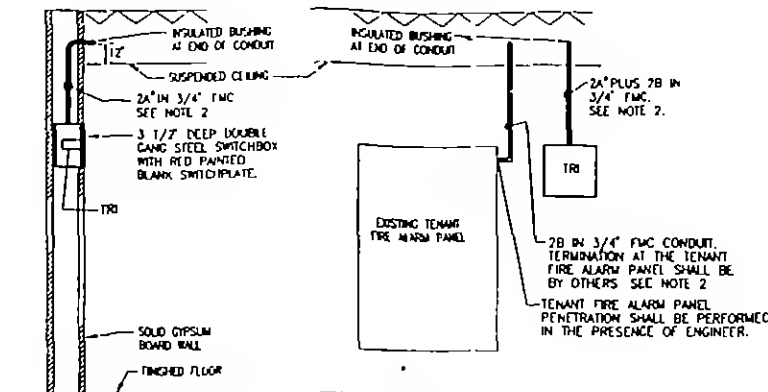 INSULATED BUSHING
AT END OF CONDUIT
12"
SUSPENDED CEILING
2A" IN 3/4" FMC
SEE NOTE 2
3 1/2" DEEP DOUBLE
GANG STEEL SWITCHBOX
WITH RED PAINTED
BLANK SWITCHPLATE.
TRI
SOLID GYPSUM
BOARD WALL
FINISHED FLOOR
INSULATED BUSHING
AT END OF CONDUIT
2A" PLUS 2B IN
3/4" FMC.
SEE NOTE 2.
TRI
EXISTING TENANT
FIRE ALARM PANEL
2B IN 3/4" FMC CONDUIT.
TERMINATION AT THE TENANT
FIRE ALARM PANEL SHALL BE
BY OTHERS SEE NOTE 2
TENANT FIRE ALARM PANEL
PENETRATION SHALL BE PERFORMED
IN THE PRESENCE OF ENGINEER.